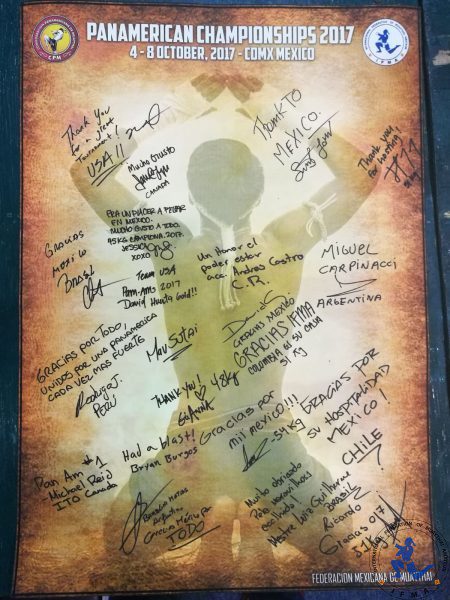 PANAMERICAN CHAMPIONSHIPS 2017
4 - 8 OCTOBER, 2017 - CDMX MEXICO
CPM
IFMA
Thank You
for a great
Tournament!
USA!!
Mucho Gusto
CANADA
Thank TO
MEXICO.
Thank you
for hosting!
ERA UN PLACER A PELEAR
EN MEXICO.
MUCHO GUSTO A TODO.
45KG CAMPIONA. 2017.
JESSICA
XOXO
GRACIAS
MEXICO
BRASIL
Team USA
Pam-Ams 2017
David Huerta Gold!!
Un Honor el
poder estar
aca. Andres Castro
C.R.
MIGUEL
CARPINACCI
ARGENTINA
David S
GRACIAS MEXICO
GRACIAS IFMA
COLOMBIA ES SU CASA
51 Kg
GRACIAS POR TODO,
UNIDOS POR UNA PANAMERICA
CADA VEZ MAS FUERTE
Rodrigo J.
PERU
Mav Sutai
THANK YOU!
48kg
Gracias por
mil mexico!!!
-54 KG
GRACIAS POR
SU HOSPITALIDAD
MEXICO!
CHILE
Pan Am #1
Michael Reid
ITO Canada
Had a blast!
Bryan Burgos
Argentina
Gracias México x
TODO
Muito obrigado
Pela maravilhosa
acolhida!
Mestre Luiz Guilherme
Brasil
Ricardo
Gracias 017
51kg
FEDERACIÓN MEXICANA DE MUAYTHAI
IFMA